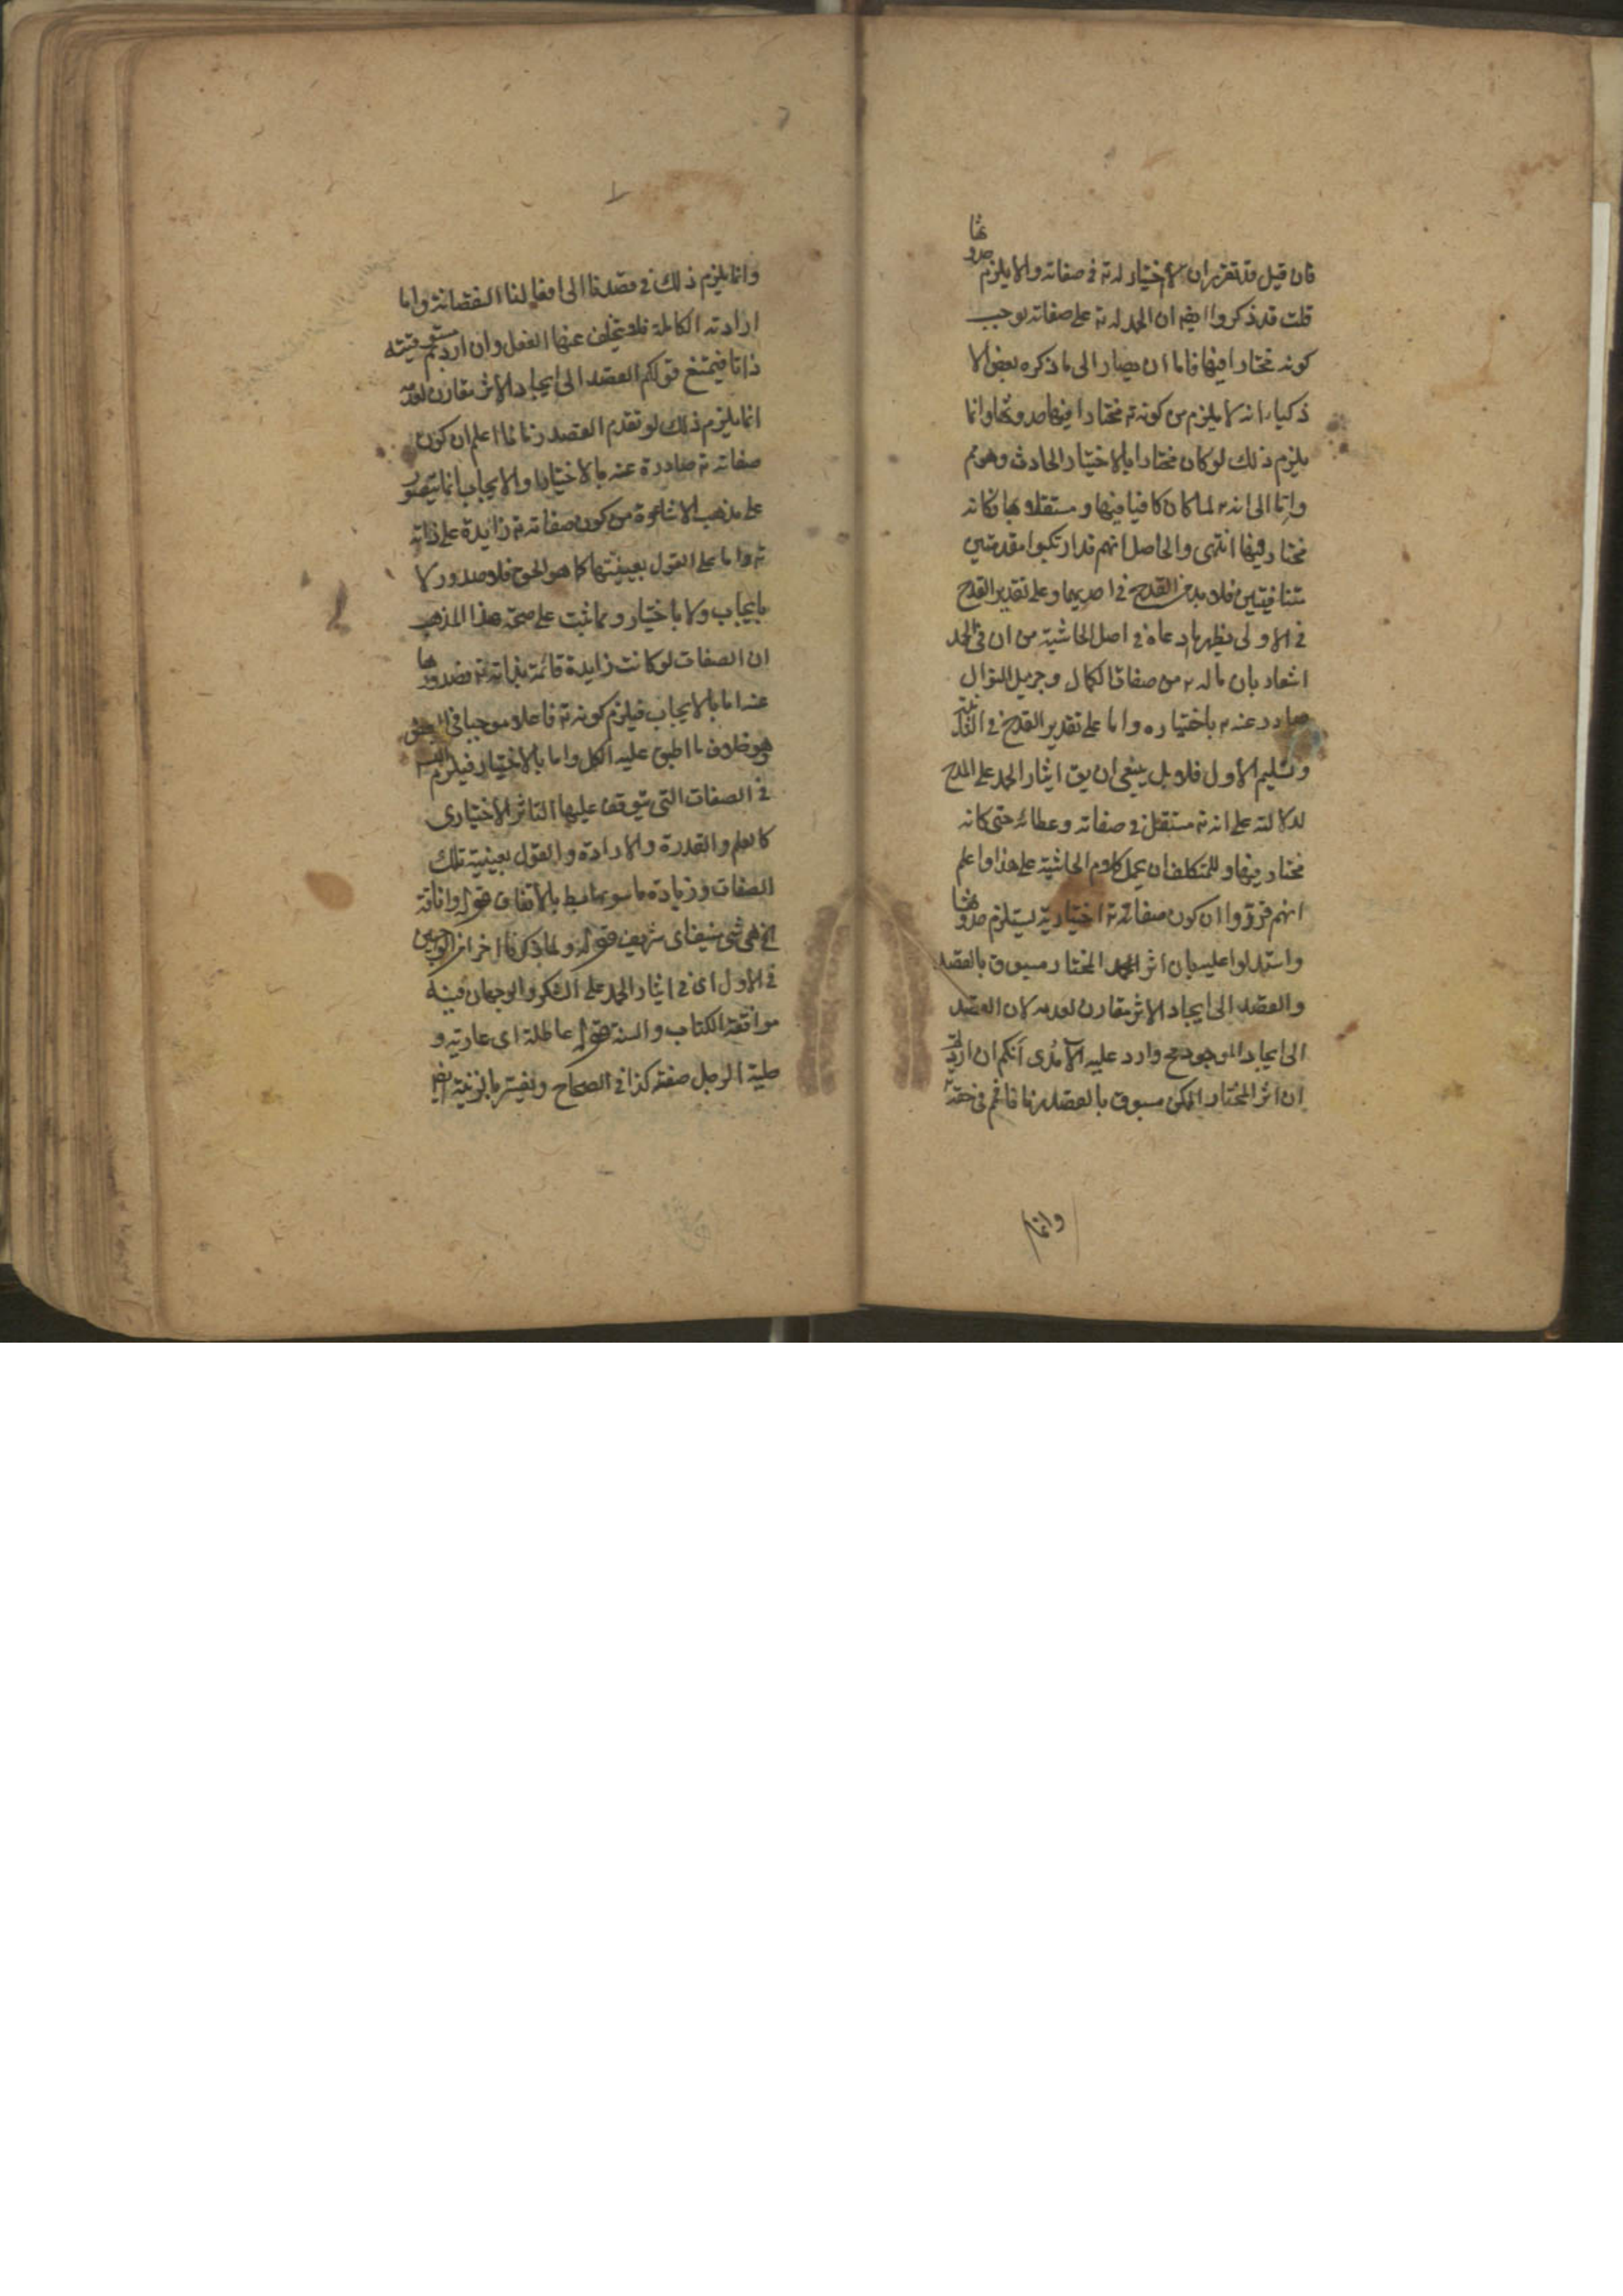 فان قيل قد تقرر ان لا اختيار له تع في صفاته والا يلزم حدوثها
قلت قد ذكروا ايضا ان الحمد له تع على صفاته يوجب
كونه مختارا فيها فاما ان يصار الى ما ذكره بعض الا
ذكياء انه لا يلزم من كونه تع مختارا فيها حدوثها وانما
يلزم ذلك لو كان مختارا بالاختيار الحادث وهو مم
واما الى انه تع لما كان كافيا فيها ومستقلا بها فكانه
مختار فيها انتهى والحاصل انهم قد ارتكبوا مقدمتين
متنافيتين فلا بد من القدح في احديهما وعلى تقدير القدح
في الاولى يظهر ما ادعاه في اصل الحاشية من ان في الحمد
اشعار بان ما له تع من صفات الكمال وجزيل النوال
صادر عنه تع باختياره واما على تقدير القدح في الثانية
وتسليم الاول فلا بل ينبغي ان يق ايثار الحمد على المدح
لدلالته على انه تع مستقل في صفاته وعطائه حتى كانه
مختار فيها وللمتكلف ان يحمل كلام الحاشية على هذا واعلم
انهم قرروا ان كون صفاته تع اختيارية يستلزم حدوثها
واستدلوا عليه بان اثر المختار مسبوق بالقصد
والقصد الى ايجاد الاثر مقارن لعدمه لان القصد
الى ايجاد الموجود مح وارد عليه الآمدى انكم ان اردتم
ان اثر المختار الممكن مسبوق بالقصد زمانا فهم في حقه تع
وانما
وانما يلزم ذلك في قصدنا الى افعالنا النقصانه واما
ارادته الكاملة فلا يتخلف عنها الفعل وان اردتم مسبوقيته
ذاتا فيمتنع قولكم القصد الى ايجاد الاثر مقارن لعدمه
انما يلزم ذلك لو تقدم القصد زمانا اعلم ان كون
صفاته تع صادرة عنه بالاختيار او الايجاب انما يتصور
على مذهب الاشاعرة من كون صفاته تع زايدة على ذاته
تع واما على القول بعينيتها كما هو الحق فلا صدور لا
بايجاب ولا باختيار ومما ثبت على صحة هذا المذهب
ان الصفات لو كانت زايدة قائمة بذاته تع فصدورها
عنه اما بالايجاب فيلزم كونه تع فاعلا موجبا في البعض
وهو خلاف ما اطبق عليه الكل واما بالاختيار فيلزم التس
في الصفات التى يتوقف عليها التاثر الاختيارى
كالعلم والقدرة والارادة والقول بعينية تلك
الصفات وزيادة ما سويها بط بالاتفاق قوله وانافة
الخ هى شى منيف اى شريف قوله ولما ذكرنا اخر الوجهين
في الاول اى في ايثار الحمد على الشكر والوجهان فيه
موافقة الكتاب والسنة قوله عاطلة اى عارية و
حلية الرجل صفته كذا في الصحاح ويفسر بالزينة ايضا